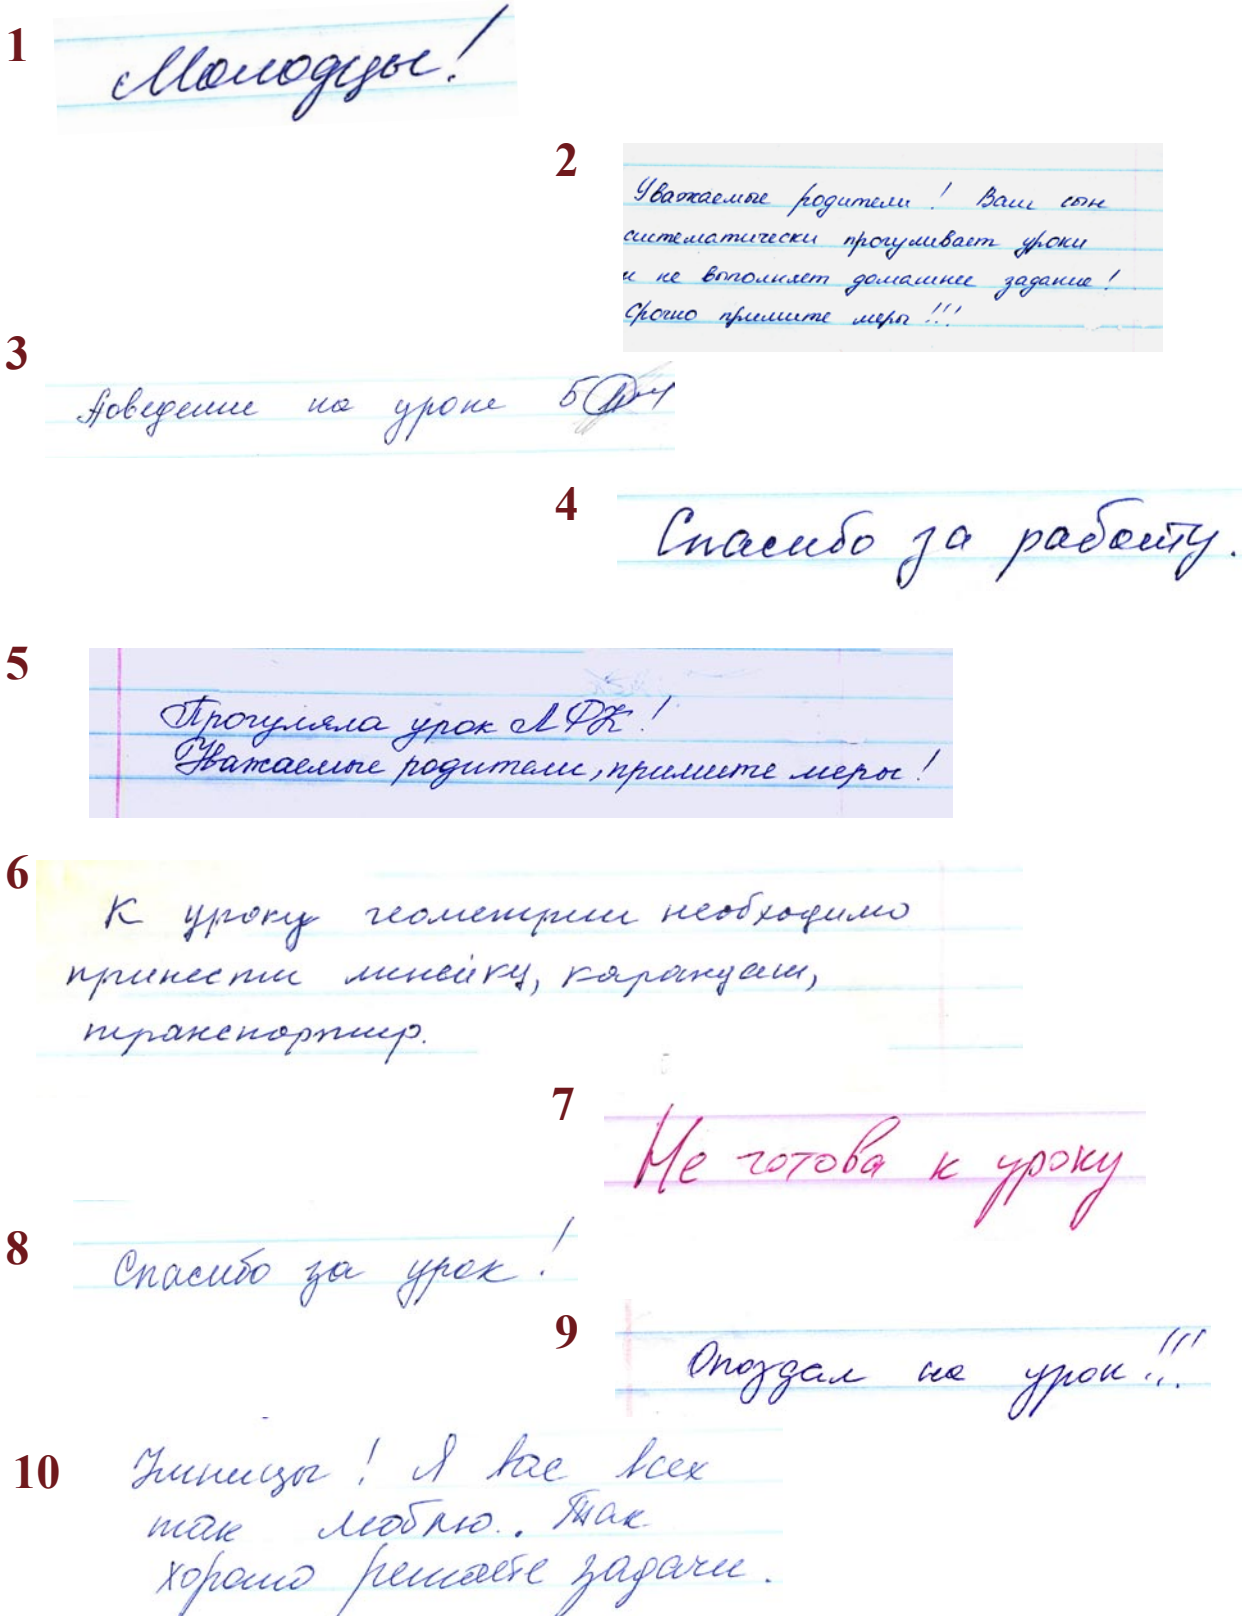 1
Молодцы!
2
Уважаемые родители! Ваш сын
систематически прогуливает уроки
и не выполняет домашнее задание!
Срочно примите меры!!!
3
Поведение на уроке 5
4
Спасибо за работу.
5
Прогуляла урок ЛФК!
Уважаемые родители, примите меры!
6
К уроку геометрии необходимо
принести линейку, карандаш,
транспортир.
7
Не готова к уроку
8
Спасибо за урок!
9
Опоздал на урок!!!
10
Умницы! Я вас всех
так люблю. Так
хорошо решаете задачи.